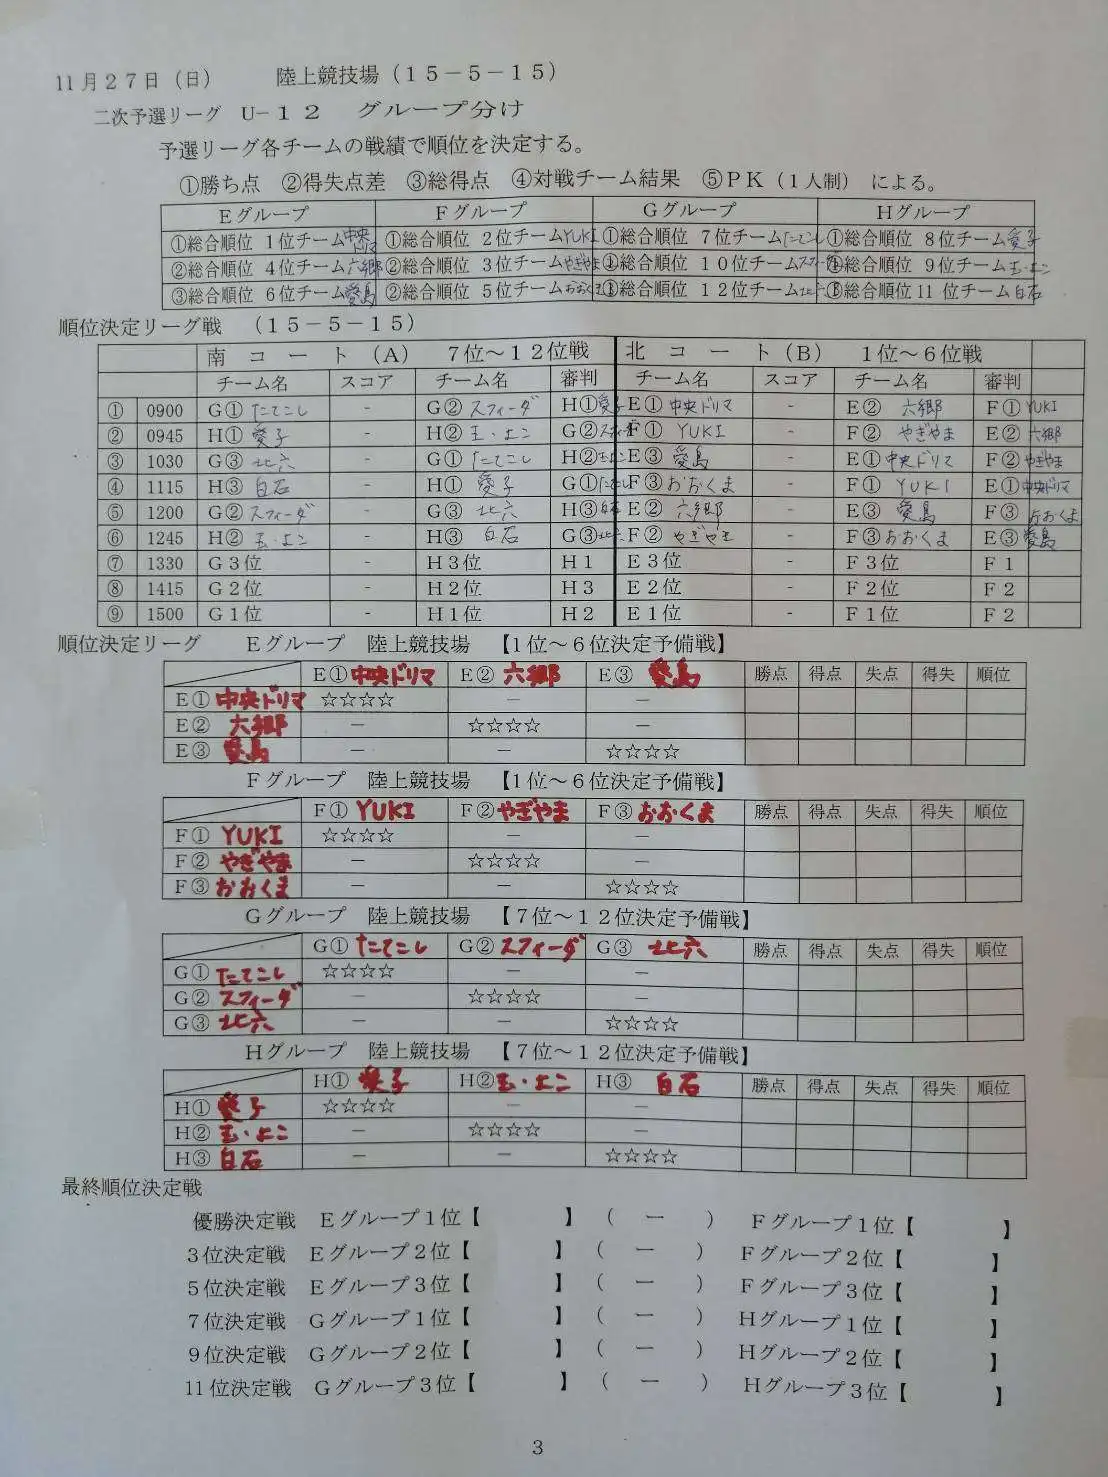 11月27日（日）　陸上競技場（15－5－15）
二次予選リーグ　U-12　グループ分け
予選リーグ各チームの戦績で順位を決定する。
①勝ち点　②得失点差　③総得点　④対戦チーム結果　⑤PK（1人制）による。
Eグループ　Fグループ　Gグループ　Hグループ
①総合順位 1位チーム中央ドリマ　①総合順位 2位チームYUKI　①総合順位 7位チームたてこし　①総合順位 8位チーム愛子
②総合順位 4位チーム六郷　②総合順位 3位チームやぎやま　総合順位 10位チームスフィーダ　総合順位 9位チーム玉・よこ
③総合順位 6位チーム愛島　②総合順位 5位チームおおくま　総合順位 12位チーム北六　総合順位11位チーム白石
順位決定リーグ戦　（15－5－15）
南コート（A）　7位～12位戦　北コート（B）　1位～6位戦
チーム名　スコア　チーム名　審判　チーム名　スコア　チーム名　審判
①　0900　G①たてこし　-　G②スフィーダ　H①愛子　E①中央ドリマ　-　E②六郷　F①YUKI
②　0945　H①愛子　-　H②玉・よこ　G②スフィーダ　F①YUKI　-　F②やぎやま　E②六郷
③　1030　G③北六　-　G①たてこし　H②玉・よこ　E③愛島　-　E①中央ドリマ　F②やぎやま
④　1115　H③白石　-　H①愛子　G①たてこし　F③おおくま　-　F①YUKI　E①中央ドリマ
⑤　1200　G②スフィーダ　-　G③北六　H③白石　E②六郷　-　E③愛島　F③おおくま
⑥　1245　H②玉・よこ　-　H③白石　G③北六　F②やぎやま　-　F③おおくま　E③愛島
⑦　1330　G3位　-　H3位　H1　E3位　-　F3位　F1
⑧　1415　G2位　-　H2位　H3　E2位　-　F2位　F2
⑨　1500　G1位　-　H1位　H2　E1位　-　F1位　F2
順位決定リーグ　Eグループ　陸上競技場　【1位～6位決定予備戦】
E①中央ドリマ　E②六郷　E③愛島　勝点　得点　失点　得失　順位
E①中央ドリマ　☆☆☆☆　－　－
E②六郷　－　☆☆☆☆　－
E③愛島　－　－　☆☆☆☆
Fグループ　陸上競技場　【1位～6位決定予備戦】
F①YUKI　F②やぎやま　F③おおくま　勝点　得点　失点　得失　順位
F①YUKI　☆☆☆☆　－　－
F②やぎやま　－　☆☆☆☆　－
F③おおくま　－　－　☆☆☆☆
Gグループ　陸上競技場　【7位～12位決定予備戦】
G①たてこし　G②スフィーダ　G③北六　勝点　得点　失点　得失　順位
G①たてこし　☆☆☆☆　－　－
G②スフィーダ　－　☆☆☆☆　－
G③北六　－　－　☆☆☆☆
Hグループ　陸上競技場　【7位～12位決定予備戦】
H①愛子　H②玉・よこ　H③白石　勝点　得点　失点　得失　順位
H①愛子　☆☆☆☆　－　－
H②玉・よこ　－　☆☆☆☆　－
H③白石　－　－　☆☆☆☆
最終順位決定戦
優勝決定戦　Eグループ1位【　　】（　－　）　Fグループ1位【　　】
3位決定戦　Eグループ2位【　　】（　－　）　Fグループ2位【　　】
5位決定戦　Eグループ3位【　　】（　－　）　Fグループ3位【　　】
7位決定戦　Gグループ1位【　　】（　－　）　Hグループ1位【　　】
9位決定戦　Gグループ2位【　　】（　－　）　Hグループ2位【　　】
11位決定戦　Gグループ3位【　　】（　－　）　Hグループ3位【　　】
3